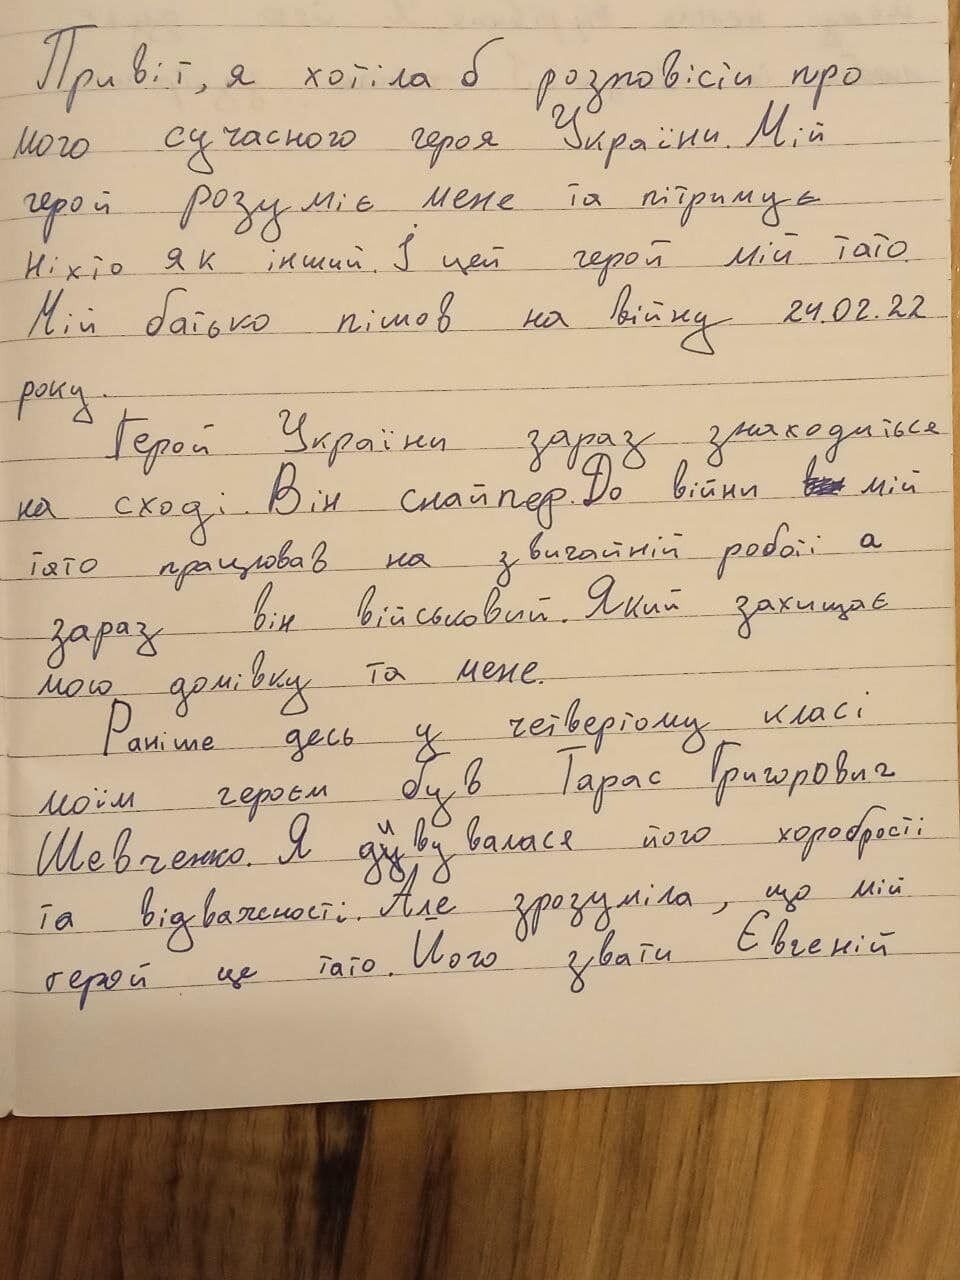 Привіт, я хотіла б розповісти про
мого сучасного героя України. Мій
герой розуміє мене та пітримує
ніхто як інший. І цей герой мій тато.
Мій батько пішов на війну 24.02.22
року.
Герой України зараз знаходиться
на сході. Він снайпер. До війни мій
тато працював на звичайній роботі а
зараз він військовий. Який захищає
мою домівку та мене.
Раніше десь у четвертому класі
моїм героєм був Тарас Григорович
Шевченко. Я дивувалася його хоробрості
та відважності. Але зрозуміла, що мій
герой це тато. Його звати Євгеній